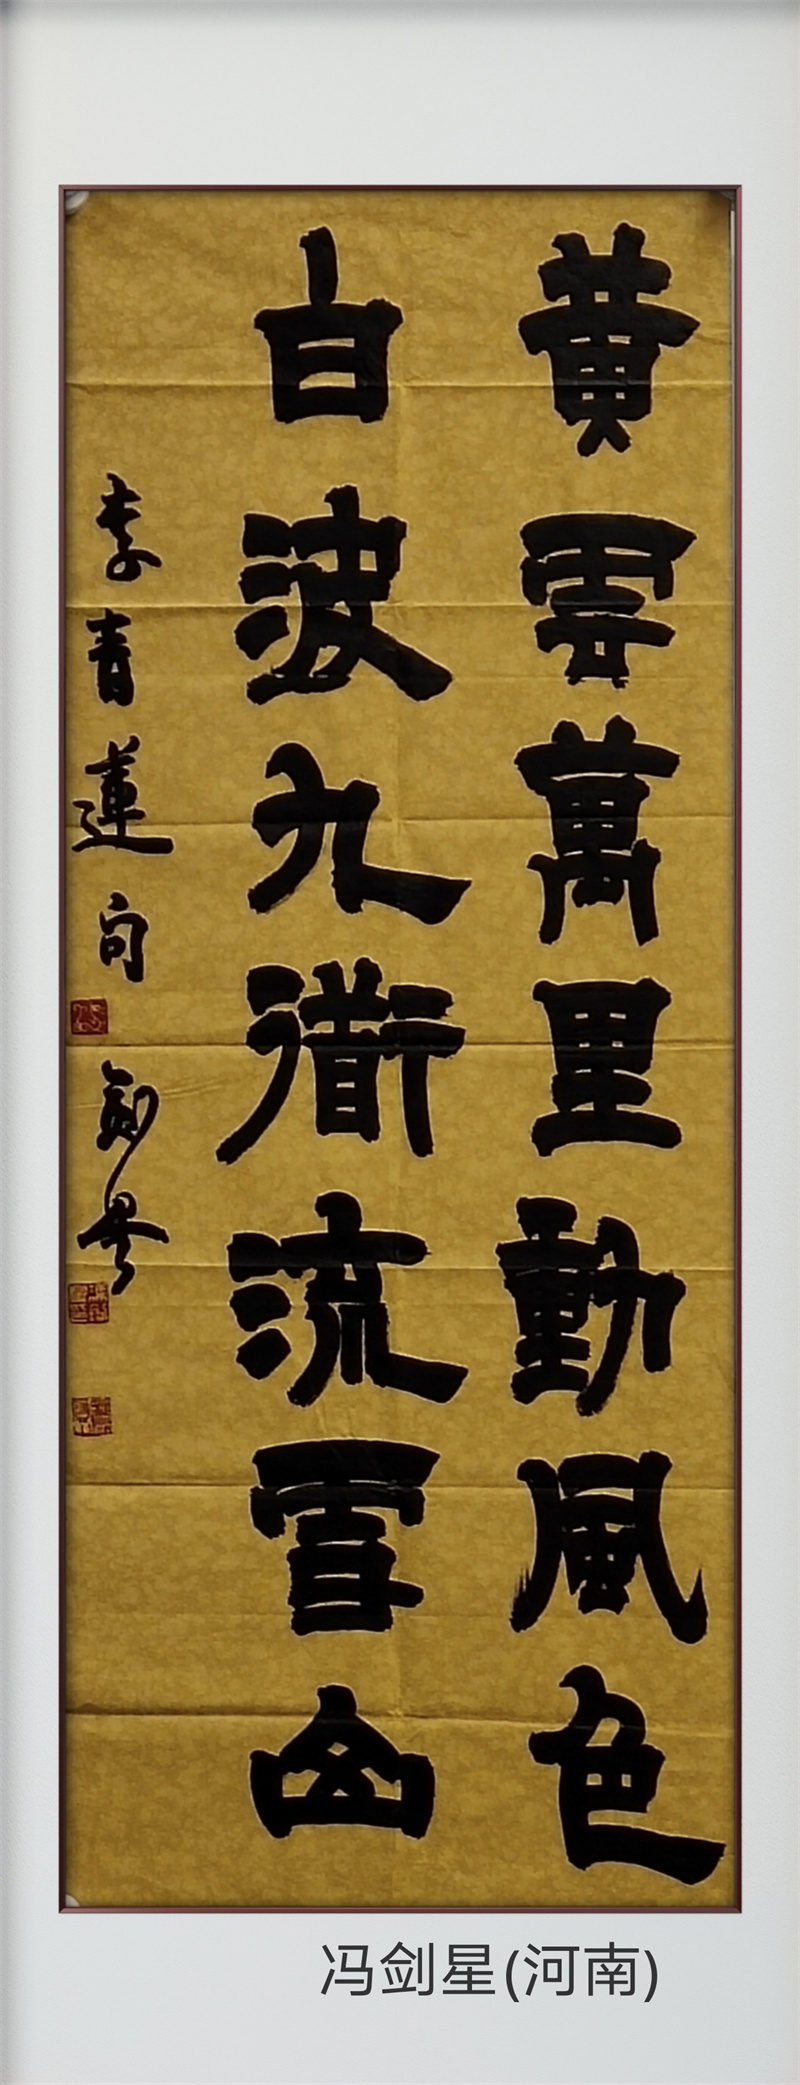 黄雲萬里動風色
白波九衟流雪山
李青蓮句
劍星
冯剑星(河南)